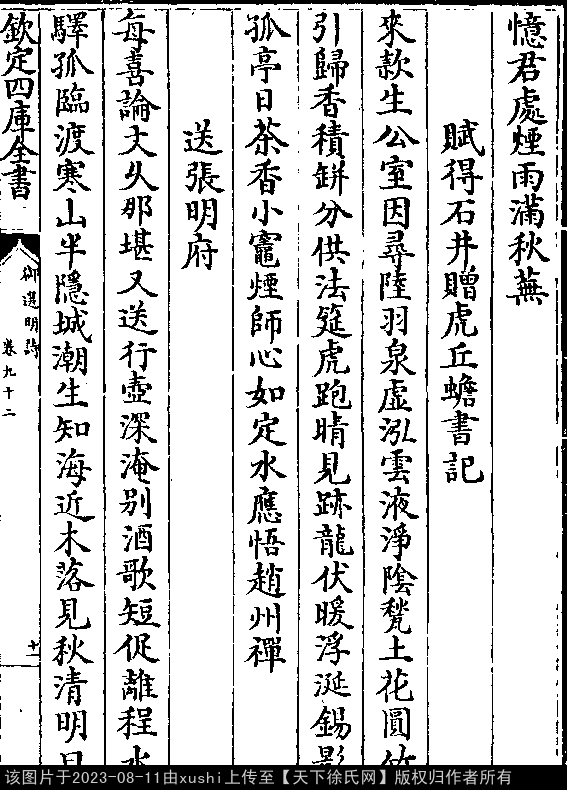 憶君處煙雨滿秋蕪
賦得石井贈虎丘蟾書記
來款生公室因尋陸羽泉虛泓雲液淨陰甃土花圓竹
引歸香積缾分供法筵虎跑晴見跡龍伏暖浮涎錫影
孤亭日茶香小竈煙師心如定水應悟趙州禪
送張明府
每喜論文久那堪又送行壺深淹别酒歌短促離程水
驛孤臨渡寒山半隱城潮生知海近木落見秋清明日
欽定四庫全書
御選明詩
卷九十二
十一
该图片于2023-08-11由xushi上传至【天下徐氏网】版权归作者所有